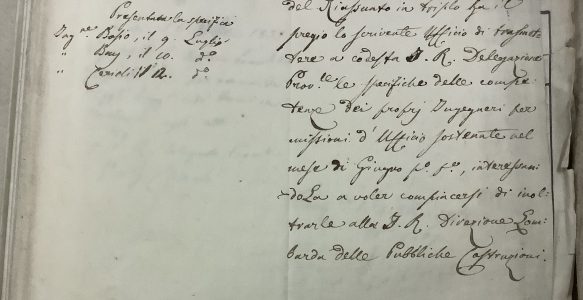 Presentata la specifica
Ing.re Bosio, il 9. Luglio
" Bay, il 10. d.o
" Cerioli il 12. d.o
del Riassunto in triplo ha il
pregio lo scrivente Ufficio di trasmet
tere a codesta I. R. Delegazione
Prov.le le specifiche delle compe
tenze dei proprj Ingegneri per
missioni d'Ufficio sostenute nel
mese di Giugno p.o p.o, interessan
doLa a voler compiacersi di inol
trarle alla I. R. Direzione Lom
barda delle Pubbliche Costruzioni.